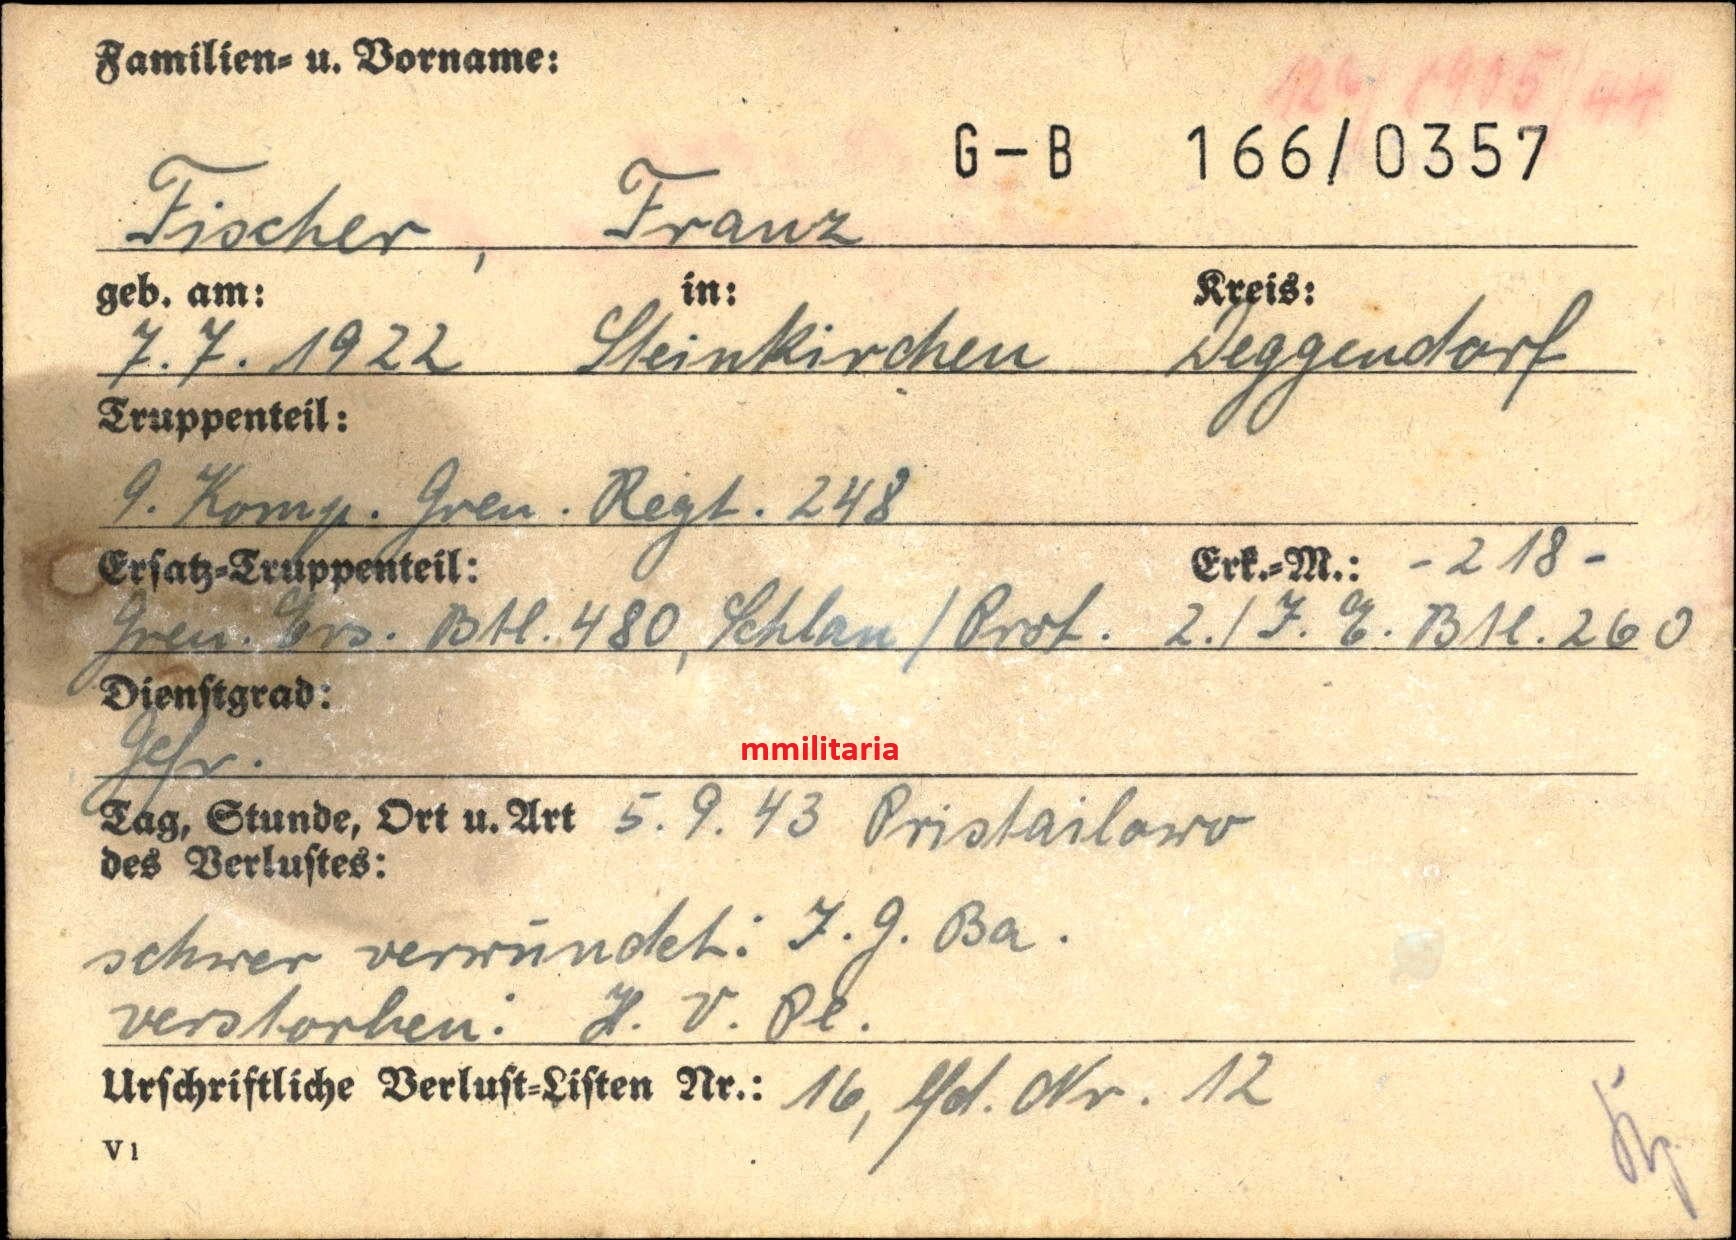 Familien- u. Vorname:
G-B 166/0357
Fischer, Franz
geb. am: in: Kreis:
7.7.1922 Steinkirchen Deggendorf
Truppenteil:
9. Komp. Gren. Regt. 248
Ersatz-Truppenteil: Erk.-M.: -218-
Gren. Ers. Btl. 480, Schlan / Prot. 2./J. E. Btl. 260
Dienstgrad:
Gefr.
mmilitaria
Tag, Stunde, Ort u. Art 5.9.43 Pristailowo
des Verlustes:
schwer verwundet: J. G. Ba.
verstorben: H. V. Pl.
Urschriftliche Verlust-Listen Nr.: 16, lfd. Nr. 12
V 1